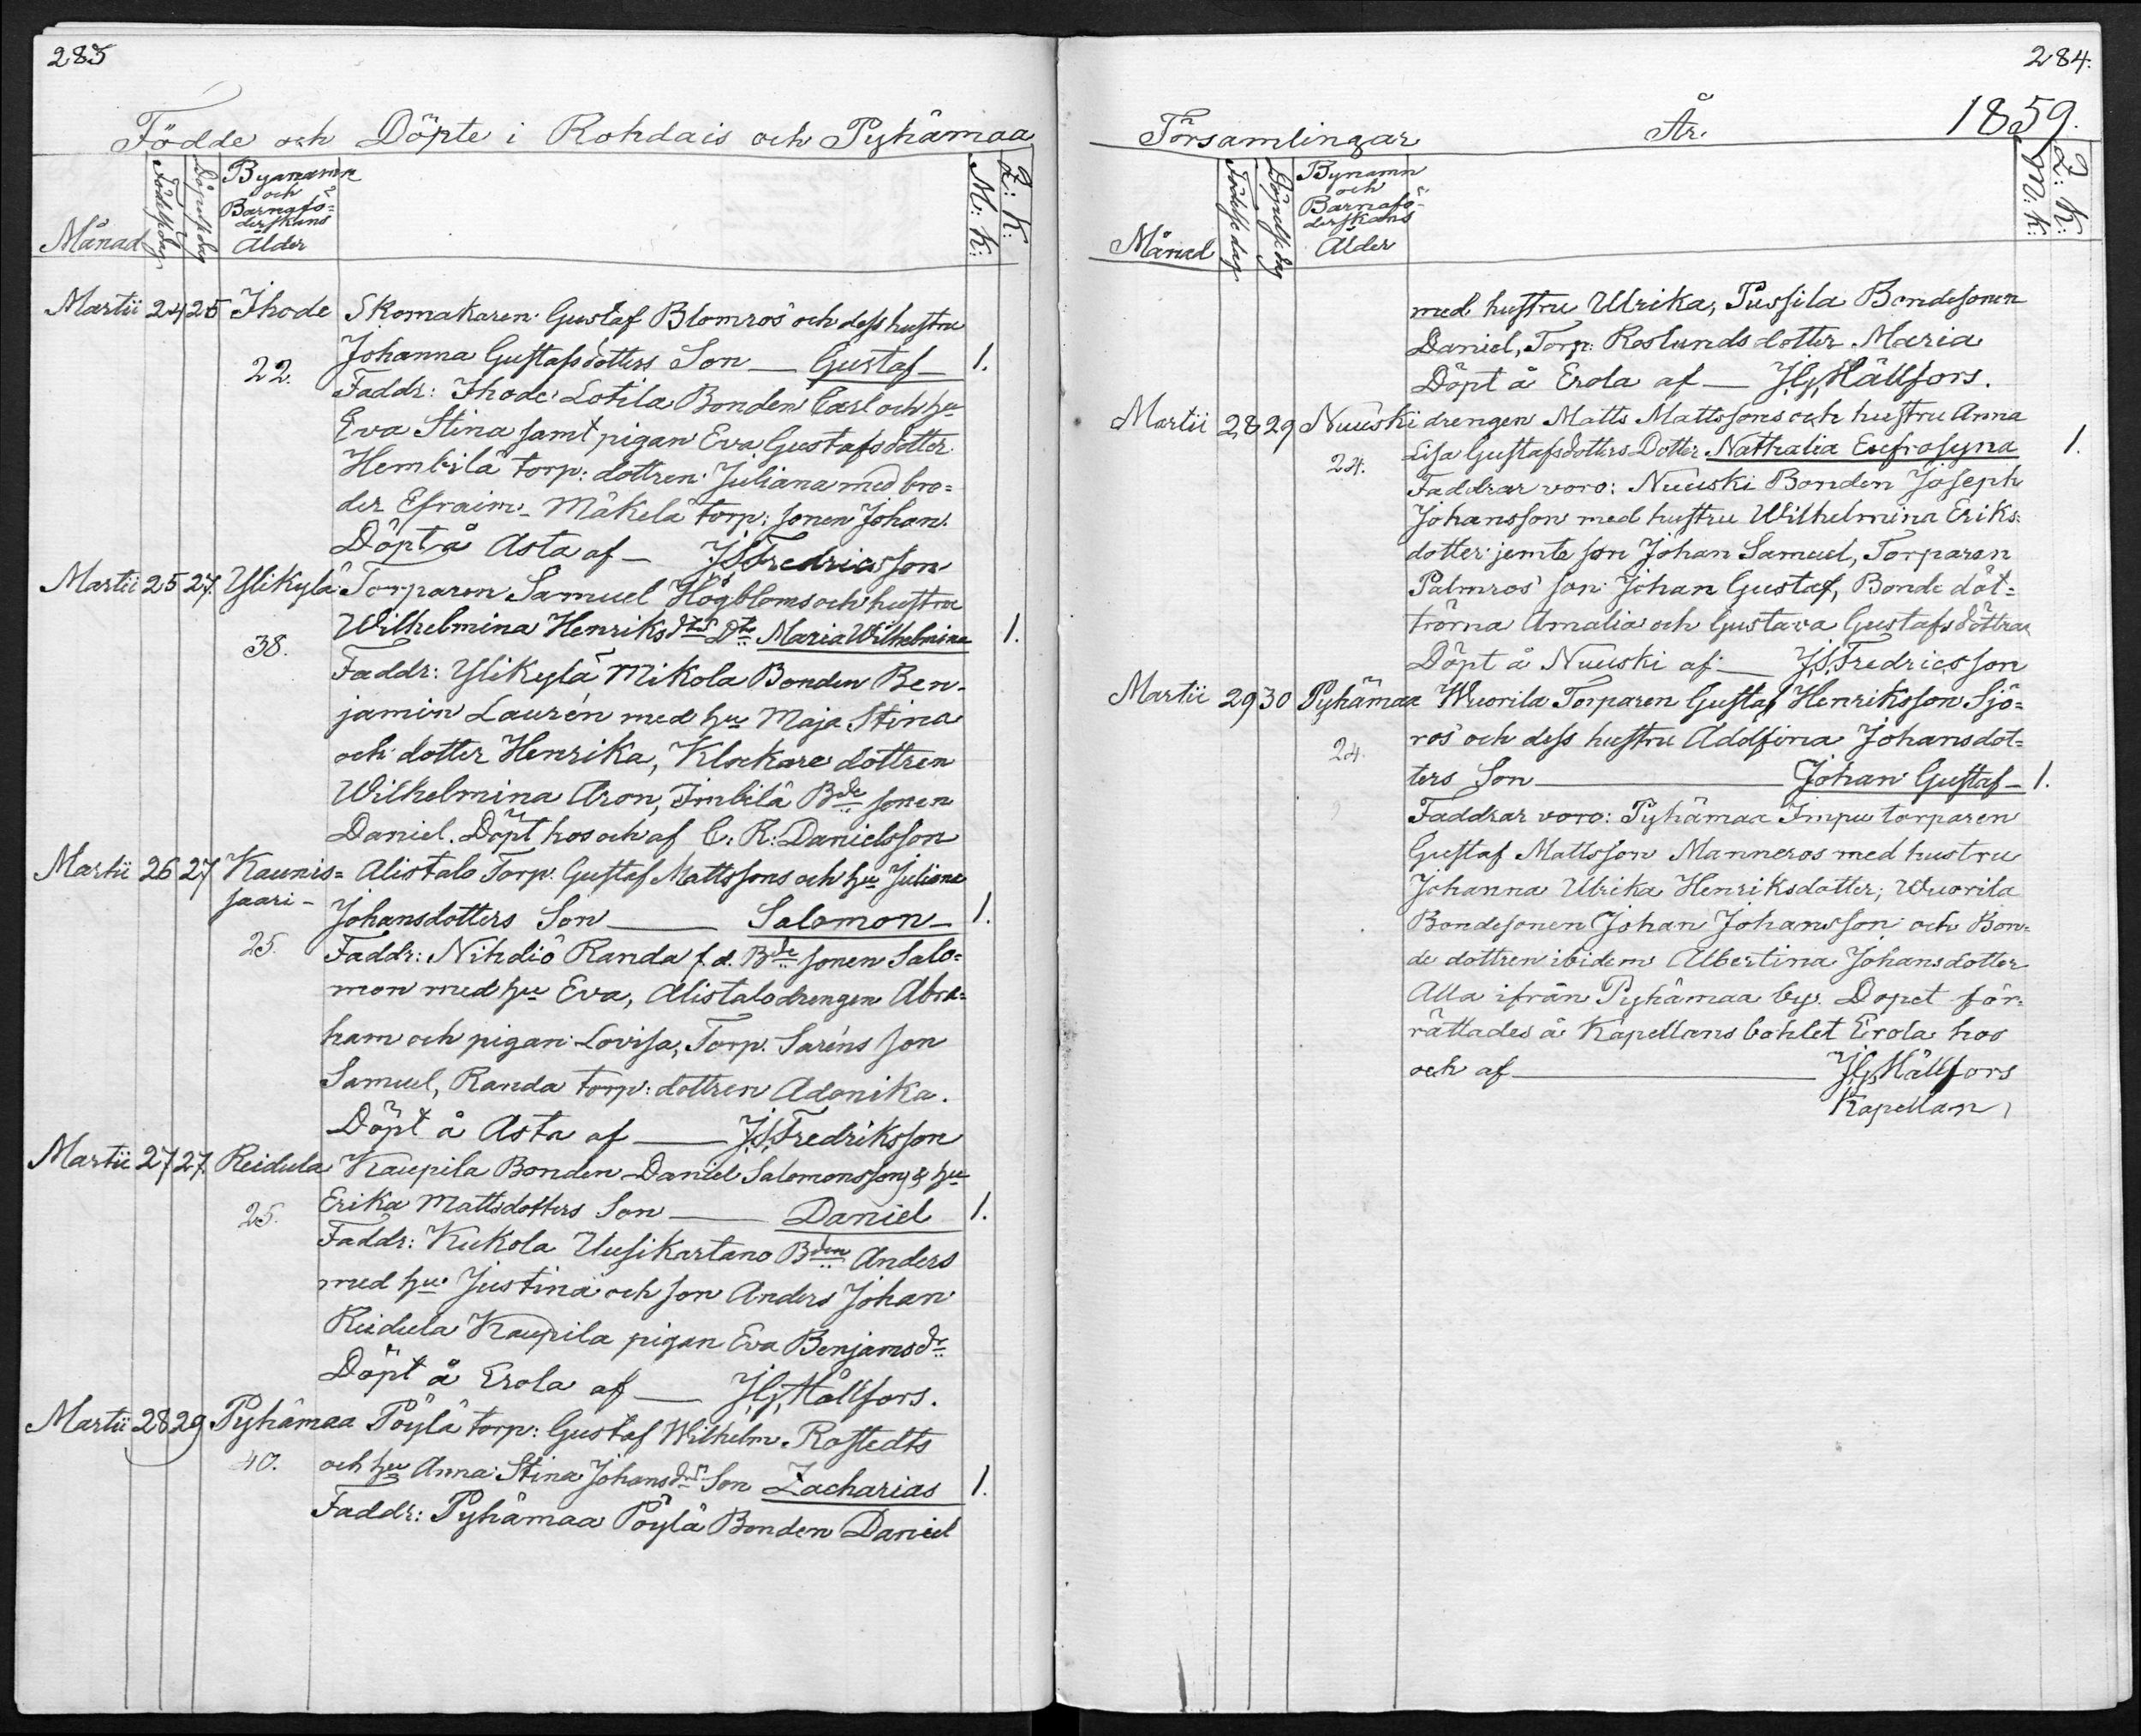 283
Födde och Döpte i Rohdais och Pyhämaa
Månad
Födelse dag
Döpelse dag
Byanamn
och
Barnafö=
derskans
Ålder
M: K:
Q: K:
Martii 24 25 Ihode Skomakaren Gustaf Blomros och dess hustru
22. Johanna Gustafsdotters Son — Gustaf — 1.
Faddr: Ihode Lotila Bonden Carl och hu
Eva Stina samt pigan Eva Gustafsdotter
Hembilä torp: dottren Juliana med bro=
der Efraim. Mäkelä torp: sonen Johan.
Döpt å Asta af — J.S. Fredricsson
Martii 25 27. Ylikylä Torparen Samuel Högbloms och hustru
38. Wilhelmina Henriksdts Dtr Maria Wilhelmina 1.
Faddr: Ylikylä Mikola Bonden Ben-
jamin Laurén med hu Maja Stina
och dotter Henrika, Klockare dottren
Wilhelmina Aron, Imbilä Bde sonen
Daniel. Döpt hos och af C. R: Danielsson
Martii 26 27 Kaunis= Alistalo Torp. Gustaf Mattssons och hu Juliana
saari — Johansdotters Son — Salomon — 1.
25. Faddr: Nihdiö Randa f. d. Bde sonen Salo=
mon med hu Eva, Alistalo drengen Abra=
ham och pigan Lovisa, Torp. Saréns son
Samuel, Randa torp: dottren Adonika.
Döpt å Asta af — J.S. Fredriksson
Martii 27 27. Reidula Kaupila Bonden Daniel Salomonssons & hu
25. Erika Mattsdotters Son — Daniel 1.
Faddr: Kukola Uusikartano Bden Anders
med hu Justina och son Anders Johan
Reidula Kaupila pigan Eva Benjamsdr
Döpt å Erola af — J.G. Hällfors.
Martii 28 29 Pyhämaa Pöylä torp: Gustaf Wilhelm Rostedts
40. och hu Anna Stina Johansdrs Son Zacharias 1.
Faddr: Pyhämaa Pöylä Bonden Daniel
284.
Församlingar År 1859.
Månad
Födelse dag
Döpelse dag
Bynamn
och
Barnafö-
derskans
Ålder
M: K:
Q: K:
med hustru Ulrika, Pussila Bondesonen
Daniel, Torp: Roslunds dotter Maria
Döpt å Erola af — J.G. Hällfors.
Martii 28 29 Nuuski drengen Matts Mattssons och hustru Anna
24. Lisa Gustafsdotters Dotter Nathalia Eufrosyna 1.
Faddrar voro: Nuuski Bonden Joseph
Johansson med hustru Wilhelmina Eriks=
dotter jemte son Johan Samuel, Torparen
Palmros son Johan Gustaf, Bonde döt=
trörna Amalia och Gustava Gustafsdöttrar
Döpt å Nuuski af — J.S. Fredricsson
Martii 29 30 Pyhämaa Wuorila Torparen Gustaf Henriksson Sjö=
24. ros och dess hustru Adolfina Johansdot=
ters Son — Johan Gustaf — 1.
Faddrar voro: Pyhämaa Impu torparen
Gustaf Mattsson Manneros med hustru
Johanna Ulrika Henriksdotter, Wuorila
Bondesonen Johan Johansson och Bon=
de dottren ibidem Albertina Johansdotter
Alla ifrån Pyhämaa by. Dopet för=
rättades å Kapellans bohlet Erola hos
och af — J.G. Hällfors
Kapellan,